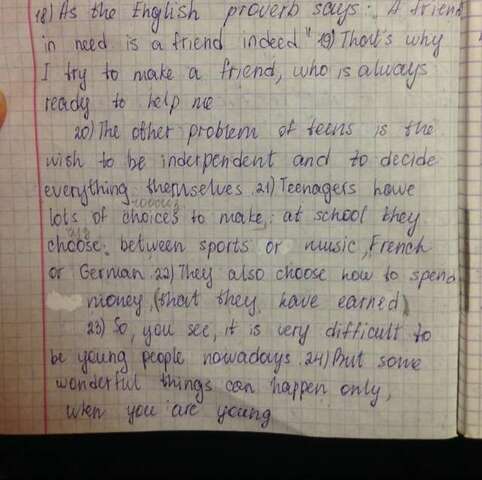 18) As the English proverb says: "A friend
in need is a friend indeed" 19) That's why
I try to make a friend, who is always
ready to help me
20) The other problem of teens is the
wish to be independent and to decide
everything themselves. 21) Teenagers have
lots of choices to make: at school they
choose between sports or music, French
or German. 22) They also choose how to spend
money, (that they have earned)
23) So, you see, it is very difficult to
be young people nowadays. 24) But some
wonderful things can happen only,
when you are young